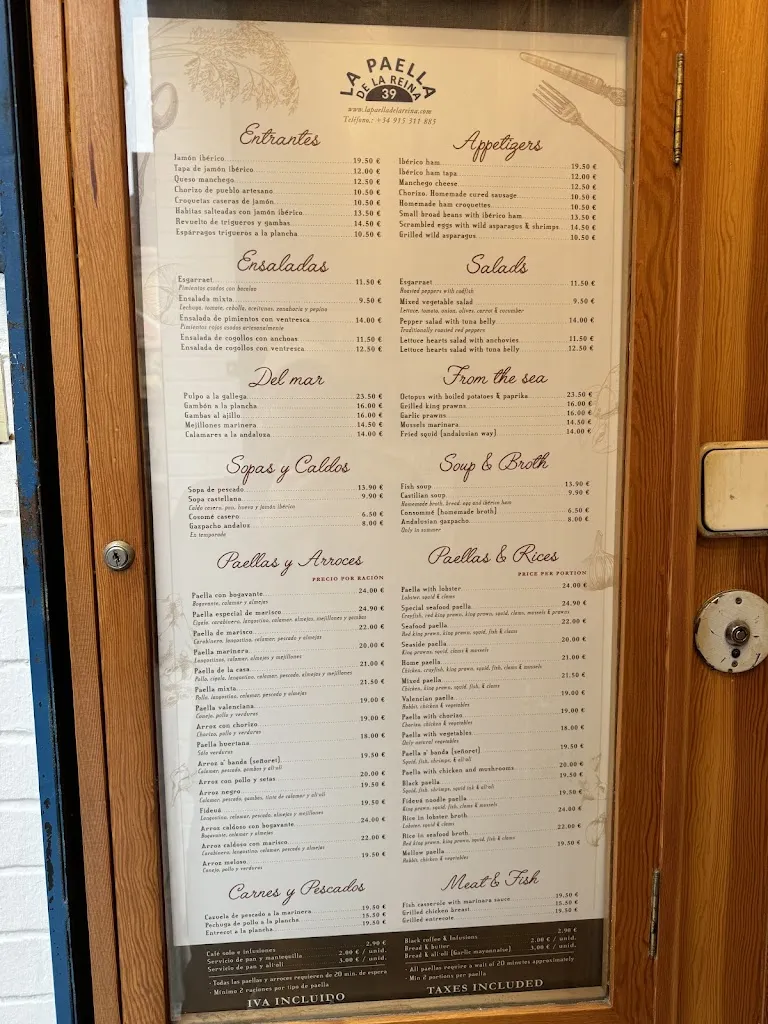 LA PAELLA
DE LA REINA
39
www.lapaelladelareina.com
Teléfono.: +34 915 311 885
Entrantes
Jamón ibérico 19.50 €
Tapa de jamón ibérico 12.00 €
Queso manchego 12.50 €
Chorizo de pueblo artesano 10.50 €
Croquetas caseras de jamón 10.50 €
Habitas salteadas con jamón ibérico 13.50 €
Revuelto de trigueros y gambas 14.50 €
Espárragos trigueros a la plancha 10.50 €
Ensaladas
Esgarraet 11.50 €
Pimientos asados con bacalao
Ensalada mixta 9.50 €
Lechuga, tomate, cebolla, aceitunas, zanahoria y pepino
Ensalada de pimientos con ventresca 14.00 €
Pimientos rojos asados artesanalmente
Ensalada de cogollos con anchoas 11.50 €
Ensalada de cogollos con ventresca 12.50 €
Del mar
Pulpo a la gallega 23.50 €
Gambón a la plancha 16.00 €
Gambas al ajillo 16.00 €
Mejillones marinera 14.50 €
Calamares a la andaluza 14.00 €
Sopas y Caldos
Sopa de pescado 13.90 €
Sopa castellana 9.90 €
Caldo casero, pan, huevo y jamón ibérico
Cosomé casero 6.50 €
Gazpacho andaluz 8.00 €
En temporada
Paellas y Arroces
PRECIO POR RACIÓN
Paella con bogavante 24.00 €
Bogavante, calamar y almejas
Paella especial de marisco 24.90 €
Cigala, carabinero, langostino, calamar, almejas, mejillones y gambas
Paella de marisco 22.00 €
Carabinero, langostino, calamar, pescado y almejas
Paella marinera 20.00 €
Langostinos, calamar, almejas y mejillones
Paella de la casa 21.00 €
Pollo, cigala, langostino, calamar, pescado, almejas y mejillones
Paella mixta 21.50 €
Pollo, langostino, calamar, pescado y almejas
Paella valenciana 19.00 €
Conejo, pollo y verduras
Arroz con chorizo 19.00 €
Chorizo, pollo y verduras
Paella huertana 18.00 €
Sólo verduras
Arroz a' banda (señoret) 19.50 €
Calamar, pescado, gambas y all-oli
Arroz con pollo y setas 20.00 €
Arroz negro 19.50 €
Calamar, pescado, gambas, tinta de calamar y all-oli
Fideuá 19.50 €
Langostino, calamar, pescado, almejas y mejillones
Arroz caldoso con bogavante 24.00 €
Bogavante, calamar y almejas
Arroz caldoso con marisco 22.00 €
Carabinero, langostino, calamar, pescado y almejas
Arroz meloso 19.50 €
Conejo, pollo y verduras
Carnes y Pescados
Cazuela de pescado a la marinera 19.50 €
Pechuga de pollo a la plancha 15.50 €
Entrecot a la plancha 19.50 €
Café solo e infusiones 2.90 €
Servicio de pan y mantequilla 2.00 € / unid.
Servicio de pan y all-oli 3.00 € / unid.
- Todas las paellas y arroces requieren de 20 min. de espera
- Mínimo 2 raciones por tipo de paella
IVA INCLUIDO
Appetizers
Ibérico ham 19.50 €
Ibérico ham tapa 12.00 €
Manchego cheese 12.50 €
Chorizo. Homemade cured sausage 10.50 €
Homemade ham croquettes 10.50 €
Small broad beans with ibérico ham 13.50 €
Scrambled eggs with wild asparagus & shrimps 14.50 €
Grilled wild asparagus 10.50 €
Salads
Esgarraet 11.50 €
Roasted peppers with codfish
Mixed vegetable salad 9.50 €
Lettuce, tomato, onion, olives, carrot & cucumber
Pepper salad with tuna belly 14.00 €
Traditionally roasted red peppers
Lettuce hearts salad with anchovies 11.50 €
Lettuce hearts salad with tuna belly 12.50 €
From the sea
Octopus with boiled potatoes & paprika 23.50 €
Grilled king prawns 16.00 €
Garlic prawns 16.00 €
Mussels marinara 14.50 €
Fried squid (andalusian way) 14.00 €
Soup & Broth
Fish soup 13.90 €
Castilian soup 9.90 €
Homemade broth, bread, egg and ibérico ham
Consommé (homemade broth) 6.50 €
Andalusian gazpacho 8.00 €
Only in summer
Paellas & Rices
PRICE PER PORTION
Paella with lobster 24.00 €
Lobster, squid & clams
Special seafood paella 24.90 €
Crayfish, red king prawn, king prawn, squid, clams, mussels & prawns
Seafood paella 22.00 €
Red king prawn, king prawn, squid, fish & clams
Seaside paella 20.00 €
King prawns, squid, clams & mussels
Home paella 21.00 €
Chicken, crayfish, king prawn, squid, fish, clams & mussels
Mixed paella 21.50 €
Chicken, king prawn, squid, fish, & clams
Valencian paella 19.00 €
Rabbit, chicken & vegetables
Paella with chorizo 19.00 €
Chorizo, chicken & vegetables
Paella with vegetables 18.00 €
Only natural vegetables
Paella a' banda (señoret) 19.50 €
Squid, fish, shrimps, & all-oli
Paella with chicken and mushrooms 20.00 €
Black paella 19.50 €
Squid, fish, shrimps, squid ink & all-oli
Fideuá noodle paella 19.50 €
King prawn, squid, fish, clams & mussels
Rice in lobster broth 24.00 €
Lobster, squid & clams
Rice in seafood broth 22.00 €
Red king prawn, king prawn, squid, fish & clams
Mellow paella 19.50 €
Rabbit, chicken & vegetables
Meat & Fish
Fish casserole with marinara sauce 19.50 €
Grilled chicken breast 15.50 €
Grilled entrecote 19.50 €
Black coffee & Infusions 2.90 €
Bread & butter 2.00 € / unid.
Bread & all-oli (Garlic mayonnaise) 3,00 € / unid.
- All paellas require a wait of 20 minutes approximately
- Min 2 portions per paella
TAXES INCLUDED